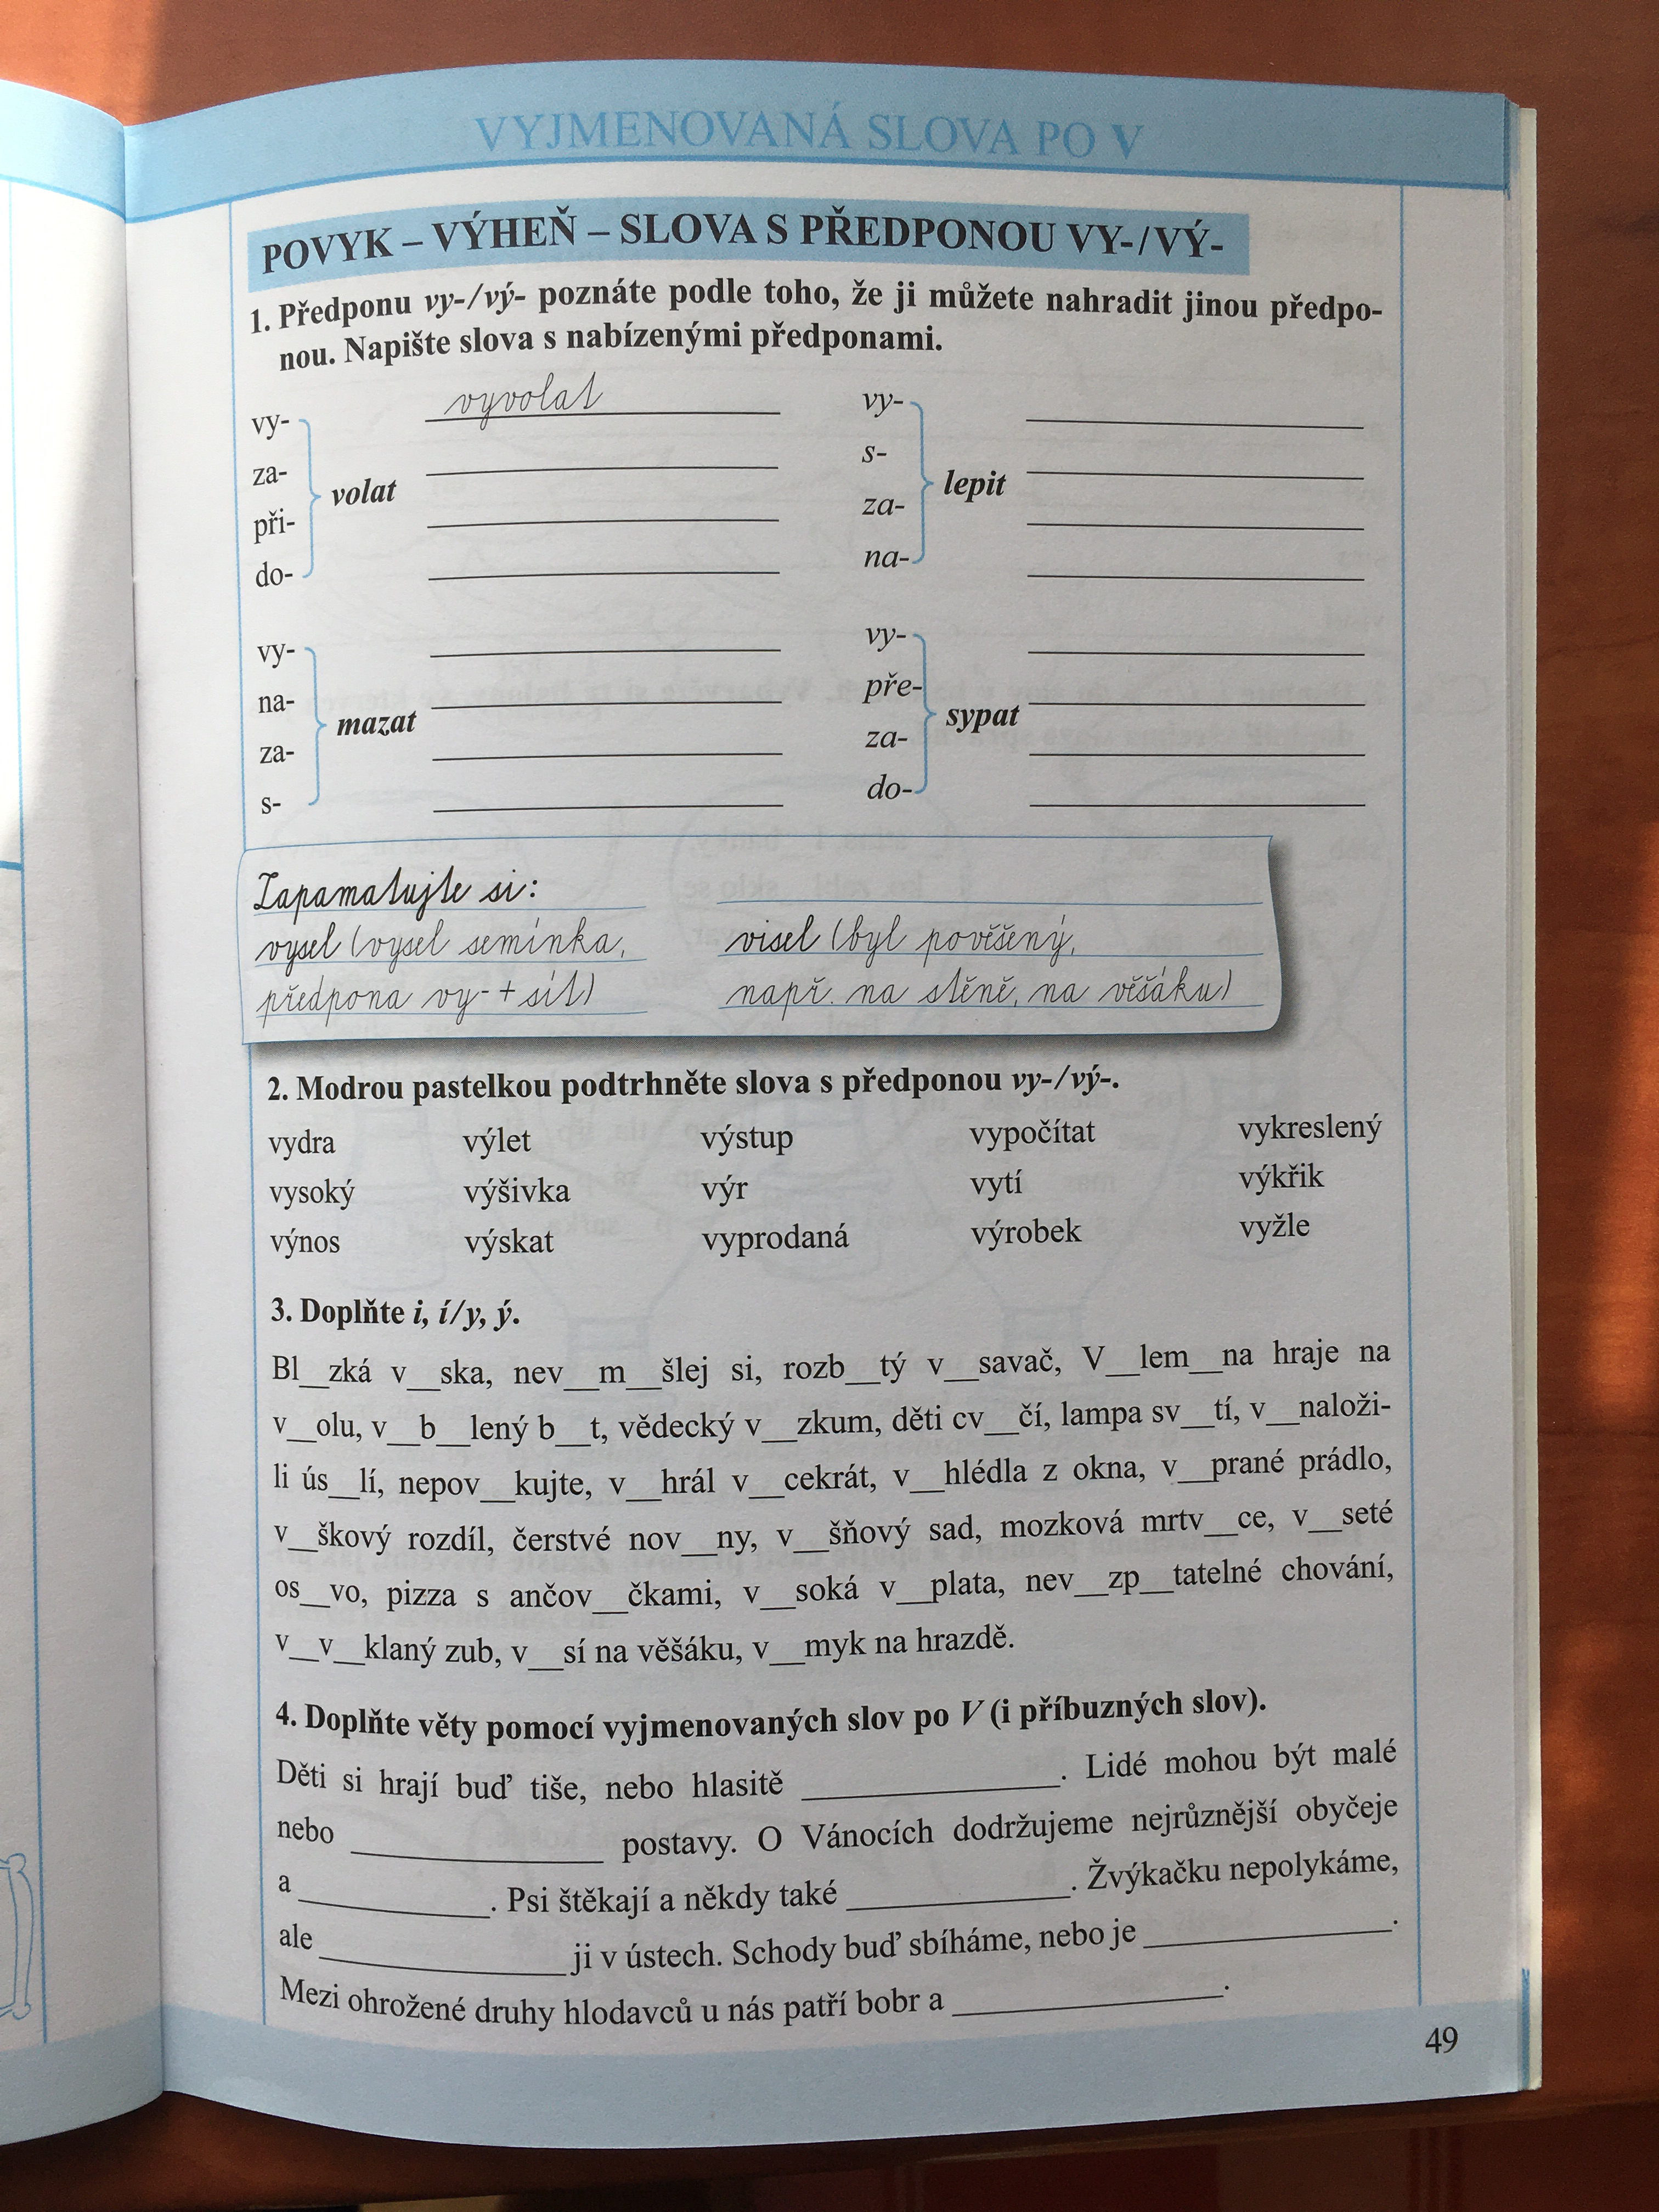 VYJMENOVANÁ SLOVA PO V
POVYK – VÝHEŇ – SLOVA S PŘEDPONOU VY-/VÝ-
1. Předponu vy-/vý- poznáte podle toho, že ji můžete nahradit jinou předpo-
nou. Napište slova s nabízenými předponami.
vy-
za-
při-
do-
volat
vyvolat
vy-
s-
za-
na-
lepit
vy-
na-
za-
s-
mazat
vy-
pře-
za-
do-
sypat
Zapamatujte si:
vysel (vysel semínka,
předpona vy- + sít)
visel (byl pověšený,
např. na stěně, na věšáku)
2. Modrou pastelkou podtrhněte slova s předponou vy-/vý-.
vydra výlet výstup vypočítat vykreslený
vysoký výšivka výr vytí výkřik
výnos výskat vyprodaná výrobek vyžle
3. Doplňte i, í/y, ý.
Bl__zká v__ska, nev__m__šlej si, rozb__tý v__savač, V__lem__na hraje na
v__olu, v__b__lený b__t, vědecký v__zkum, děti cv__čí, lampa sv__tí, v__naloži-
li ús__lí, nepov__kujte, v__hrál v__cekrát, v__hlédla z okna, v__prané prádlo,
v__škový rozdíl, čerstvé nov__ny, v__šňový sad, mozková mrtv__ce, v__seté
os__vo, pizza s ančov__čkami, v__soká v__plata, nev__zp__tatelné chování,
v__v__klaný zub, v__sí na věšáku, v__myk na hrazdě.
4. Doplňte věty pomocí vyjmenovaných slov po V (i příbuzných slov).
Děti si hrají buď tiše, nebo hlasitě ____________. Lidé mohou být malé
nebo ____________ postavy. O Vánocích dodržujeme nejrůznější obyčeje
a ____________. Psi štěkají a někdy také ____________. Žvýkačku nepolykáme,
ale ____________ ji v ústech. Schody buď sbíháme, nebo je ____________.
Mezi ohrožené druhy hlodavců u nás patří bobr a ____________.
49